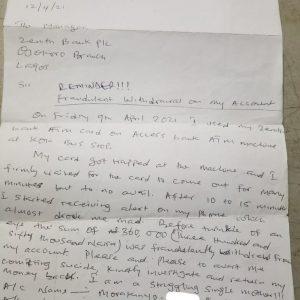 12/4/21
The Manager
Zenith Bank Plc
Branch
Lagos
Sir
REMINDER!!!
Fraudulent Withdrawal on my Account
On Friday 9th April 2021 I used my Zenith
bank Atm card on Access bank Atm machine
at Bus Stop.
My card got trapped at the machine and I
firmly waited for the card to come out for many
minutes but to no avail. After 10 to 15 minutes
I started receiving alert on my phone which
almost drove me mad. Before twinkle of an
eye the sum of 360,000 (Three Hundred and
Sixty thousand Naira) was fraudulently withdrawn from
my account. Please and Please to avert me
comitting sucide, kindly investigate and return my
money back. I am a struggling single mother!!!
A/C Name -
A/C No